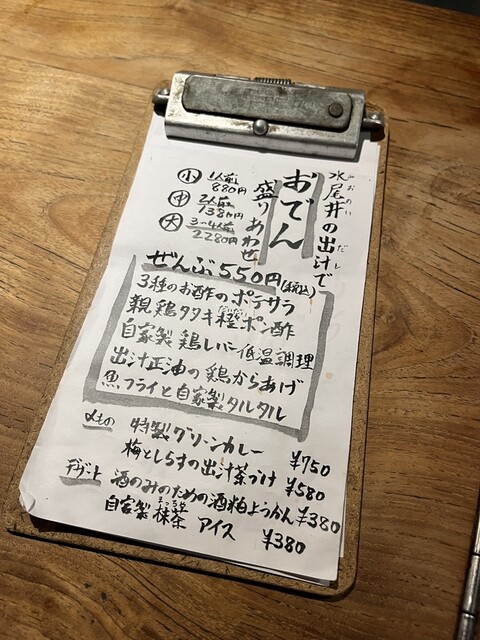 水尾井の出汁で
おでん
盛りあわせ
小 1人前 880円
中 2人前 1380円
大 3~4人前 2280円
ぜんぶ550円(税込)
3種のお酢のポテサラ
親鶏タタキ橙ポン酢
自家製 鶏レバー低温調理
出汁正油の鶏からあげ
魚フライと自家製タルタル
〆もの
特製グリーンカレー ¥750
梅としらすの出汁茶づけ ¥580
デザート
酒のみのための酒粕ようかん ¥380
自家製 抹茶 アイス ¥380